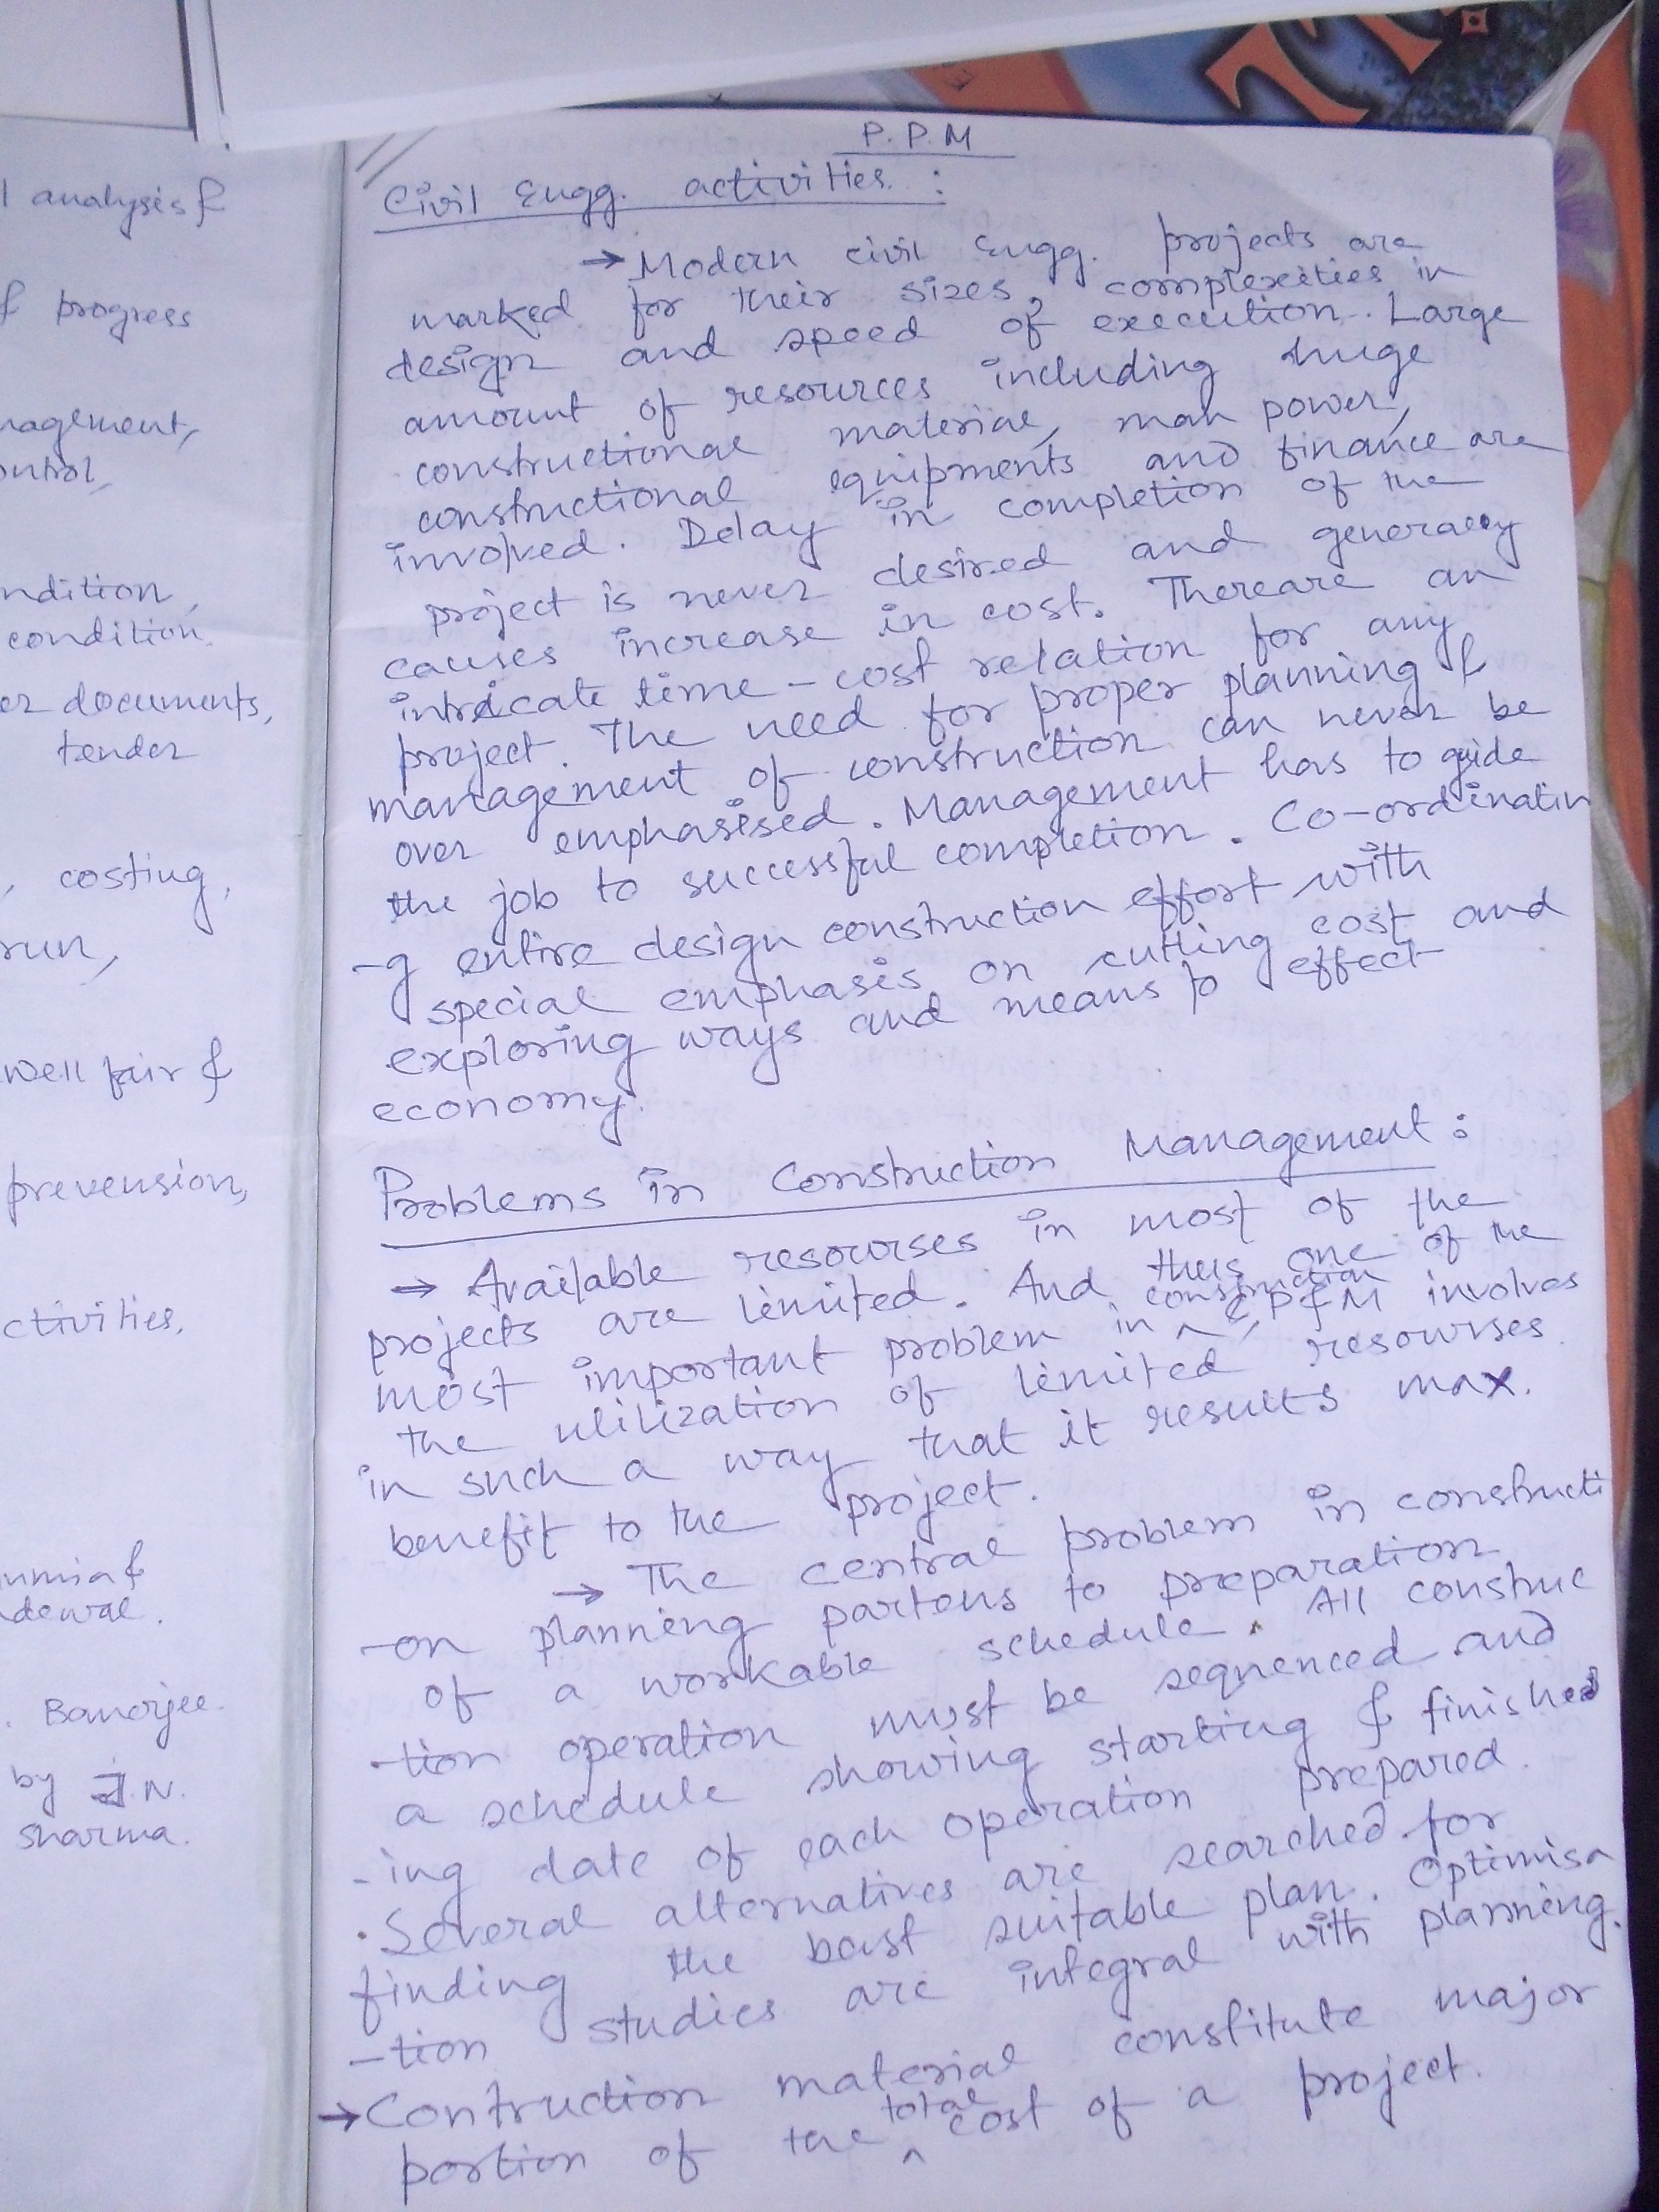 l analysis &
f progress
nagement,
ontrol,
ndition,
condition.
er documents,
tender
, costing,
run,
well fair &
prevension,
ctivities.
umia &
dewal.
. Banerjee.
by J.N.
sharma.
P.P.M
Civil Engg. activities. :
→ Modern civil Engg. projects are
marked for their sizes, complexeities in
design and speed of execution. Large
amount of resources including huge
constructional material, man power,
constructional equipments and finance are
involved. Delay in completion of the
project is never desired and generally
causes increase in cost. Thereare an
intricate time - cost relation for any
project. The need for proper planning &
management of construction can never be
over emphasised. Management has to guide
the job to successful completion. Co-ordinatin
-g entire design construction effort with
special emphasis on cutting cost and
exploring ways and means to effect
economy.
Problems in Construction Management :
→ Available resourses in most of the
projects are limited. And thus one of the
most important problem in construction P & M involves
the utilization of limited resourses
in such a way that it results max.
benefit to the project.
→ The central problem in constructi
-on planning partens to preparation
of a workable schedule. All construc
-tion operation must be sequenced and
a schedule showing starting & finished
-ing date of each operation prepared.
. Several alternatives are searched for
finding the best suitable plan. Optimisa
-tion studies are integral with planning.
→ Contruction material constitute major
portion of the total cost of a project.